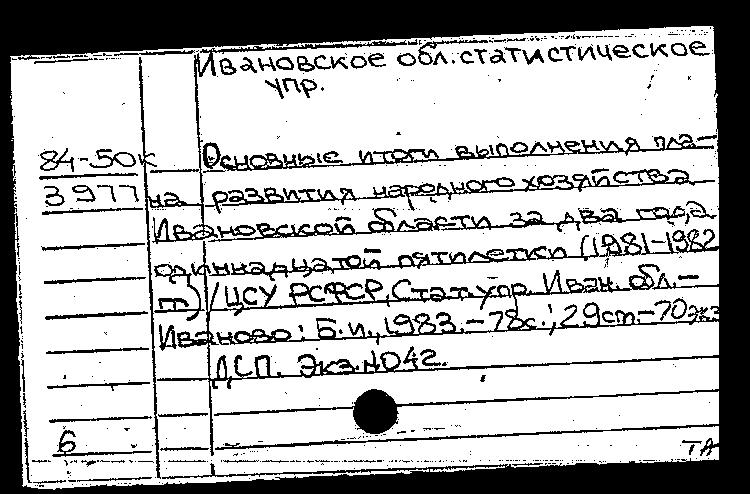 Ивановское обл. статистическое
упр.
84-50к Основные итоги выполнения пла-
3977 на развития народного хозяйства
Ивановской области за два года
одиннадцатой пятилетки (1981-1982
гг.)/ЦСУ РСФСР, Стат. упр. Иван. обл.-
Иваново: Б.и., 1983.-78с.; 29см.-70экз
ДСП. Экз.№042.
6
ТА